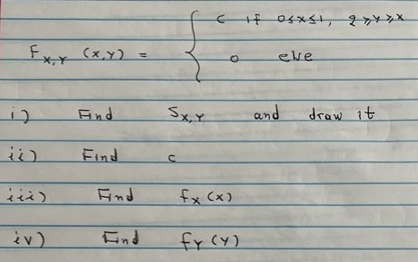 c if 0≤x≤1, 2≥y≥x
F_{X,Y} (x,y) = {
0 else
i) Find S_{X,Y} and draw it
ii) Find c
iii) Find f_X (x)
iv) Find f_Y (y)